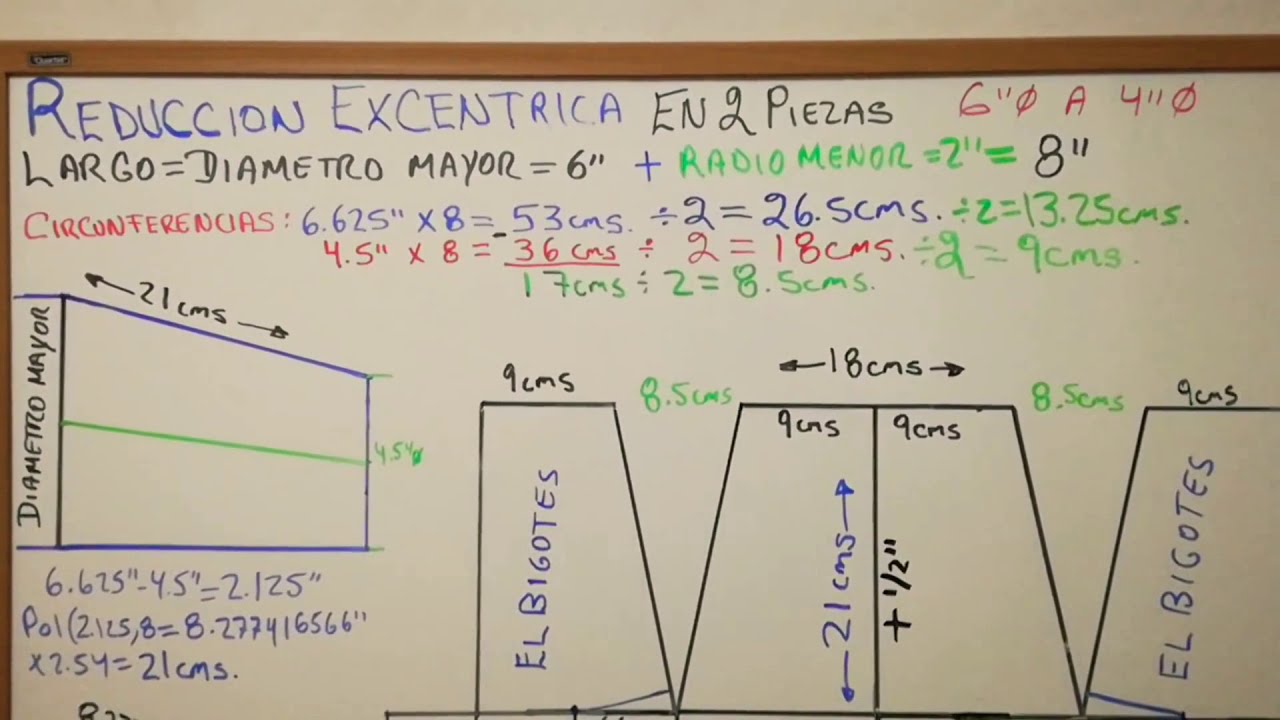 REDUCCION EXCENTRICA EN 2 PIEZAS 6"Ø A 4"Ø
LARGO = DIAMETRO MAYOR = 6" + RADIO MENOR = 2" = 8"
CIRCONFERENCIAS: 6.625" X 8 = 53cms. ÷ 2 = 26.5cms. ÷ 2 = 13.25cms.
4.5" X 8 = - 36 cms ÷ 2 = 18cms. ÷ 2 = 9cms.
17cms ÷ 2 = 8.5cms.
21cms
DIAMETRO MAYOR
4.5"Ø
6.625"-4.5"=2.125"
Pol(2.125,8=8.277416566"
x2.54=21cms.
9cms
8.5cms
18cms
8.5cms
9cms
9cms
9cms
EL BIGOTES
21cms
+ 1/2"
EL BIGOTES